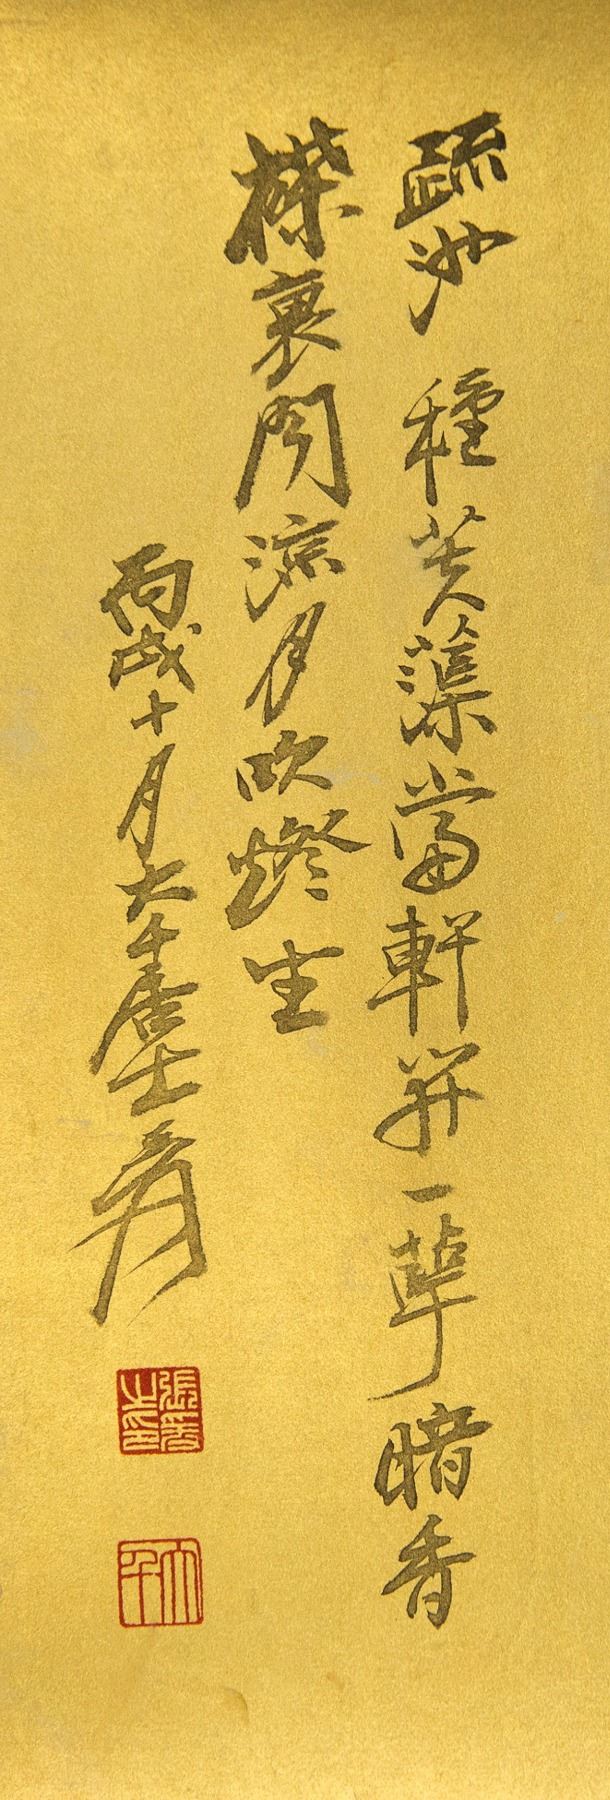 疏池種芙蕖當軒開一萼暗香
裏聞涼月吹燈坐
丙戌十月大千居士爰
張爰之印
大千